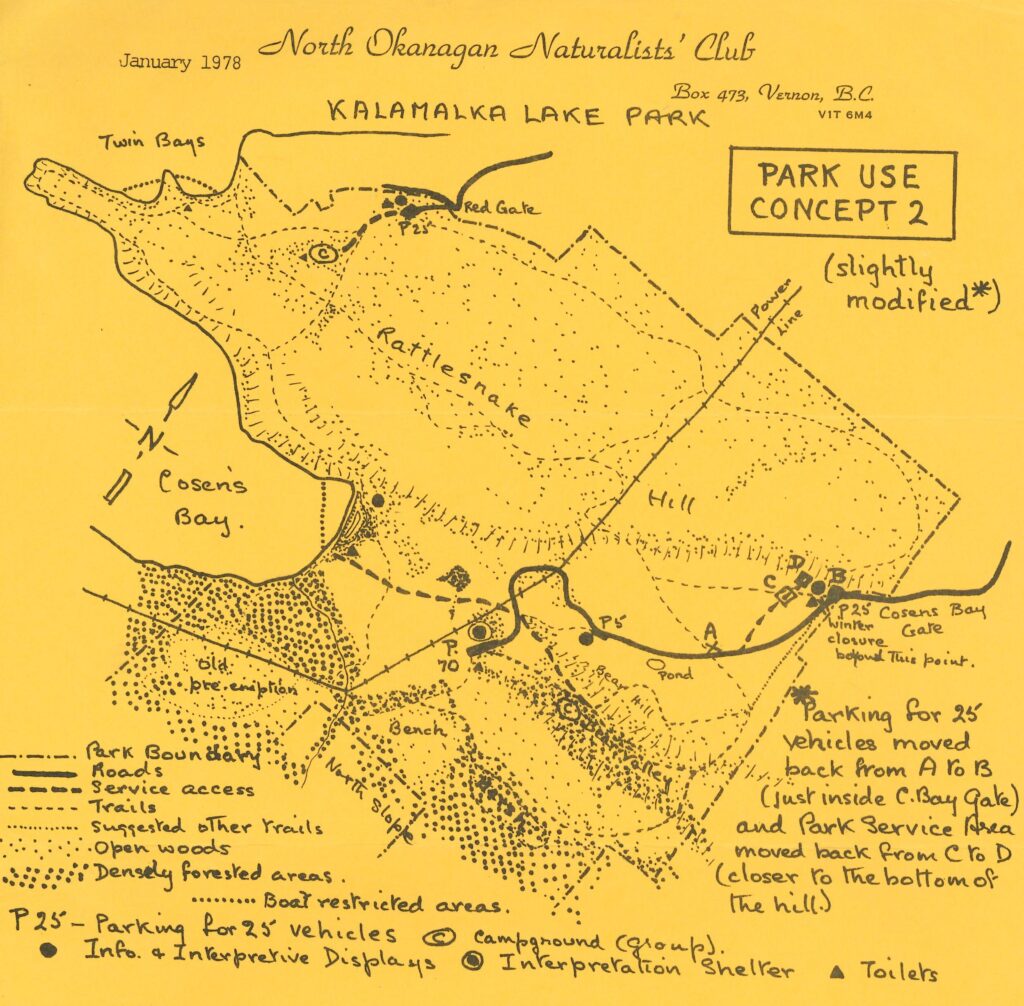 January 1978
North Okanagan Naturalists' Club
Box 473, Vernon, B.C.
V1T 6M4
KALAMALKA LAKE PARK
PARK USE
CONCEPT 2
(slightly
modified*)
Twin Bays
Red Gate
P25
C
Power
Line
Rattlesnake
Hill
N
Cosens
Bay.
D
B
C
P25 Cosens Bay
Gate
winter
closure
beyond this point.
P5
A
X
Pond
P.
70
Old
pre-emption
Bear Hill
C
Bench
Valley
North Slope
*Parking for 25
vehicles moved
back from A to B
(just inside C. Bay Gate)
and Park Service Area
moved back from C to D
(closer to the bottom of
the hill.)
Park Boundary
Roads
Service access
Trails
suggested other trails
Open woods
Densely forested areas.
Boat restricted areas.
P25 - Parking for 25 vehicles
C Campground (Group).
Info. & Interpretive Displays
Interpretation Shelter
Toilets